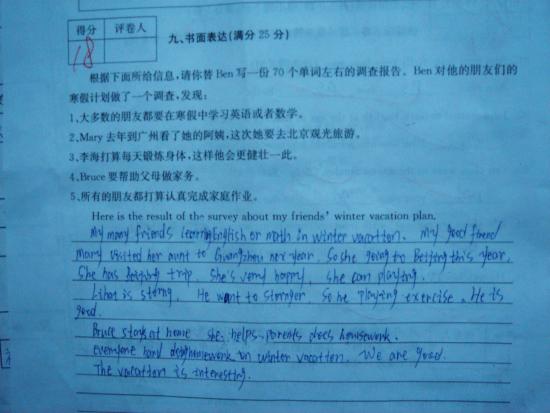 得分 评卷人
18
九、书面表达(满分 25 分)
根据下面所给信息,请你替 Ben 写一份 70 个单词左右的调查报告。Ben 对他的朋友们的
寒假计划做了一个调查,发现:
1、大多数的朋友都要在寒假中学习英语或者数学。
2、Mary 去年到广州看了她的阿姨,这次她要去北京观光旅游。
3、李海打算每天锻炼身体,这样他会更健壮一此。
4、Bruce 要帮助父母做家务。
5、所有的朋友都打算认真完成家庭作业。
Here is the result of the survey about my friends' winter vacation plan.
My many friends learning English or math in winter vacation. My good friend
Mary visited her aunt to Guangzhou year. So she going to Beijing this year.
She has trip. She's very happy. she can playing.
Lihai is . He want to stronger. So he playing exercise. He is
good.
Bruce stays at home she helps parents does housework.
everyone hard homework on winter vacation. We are good.
The vacation is interesting.